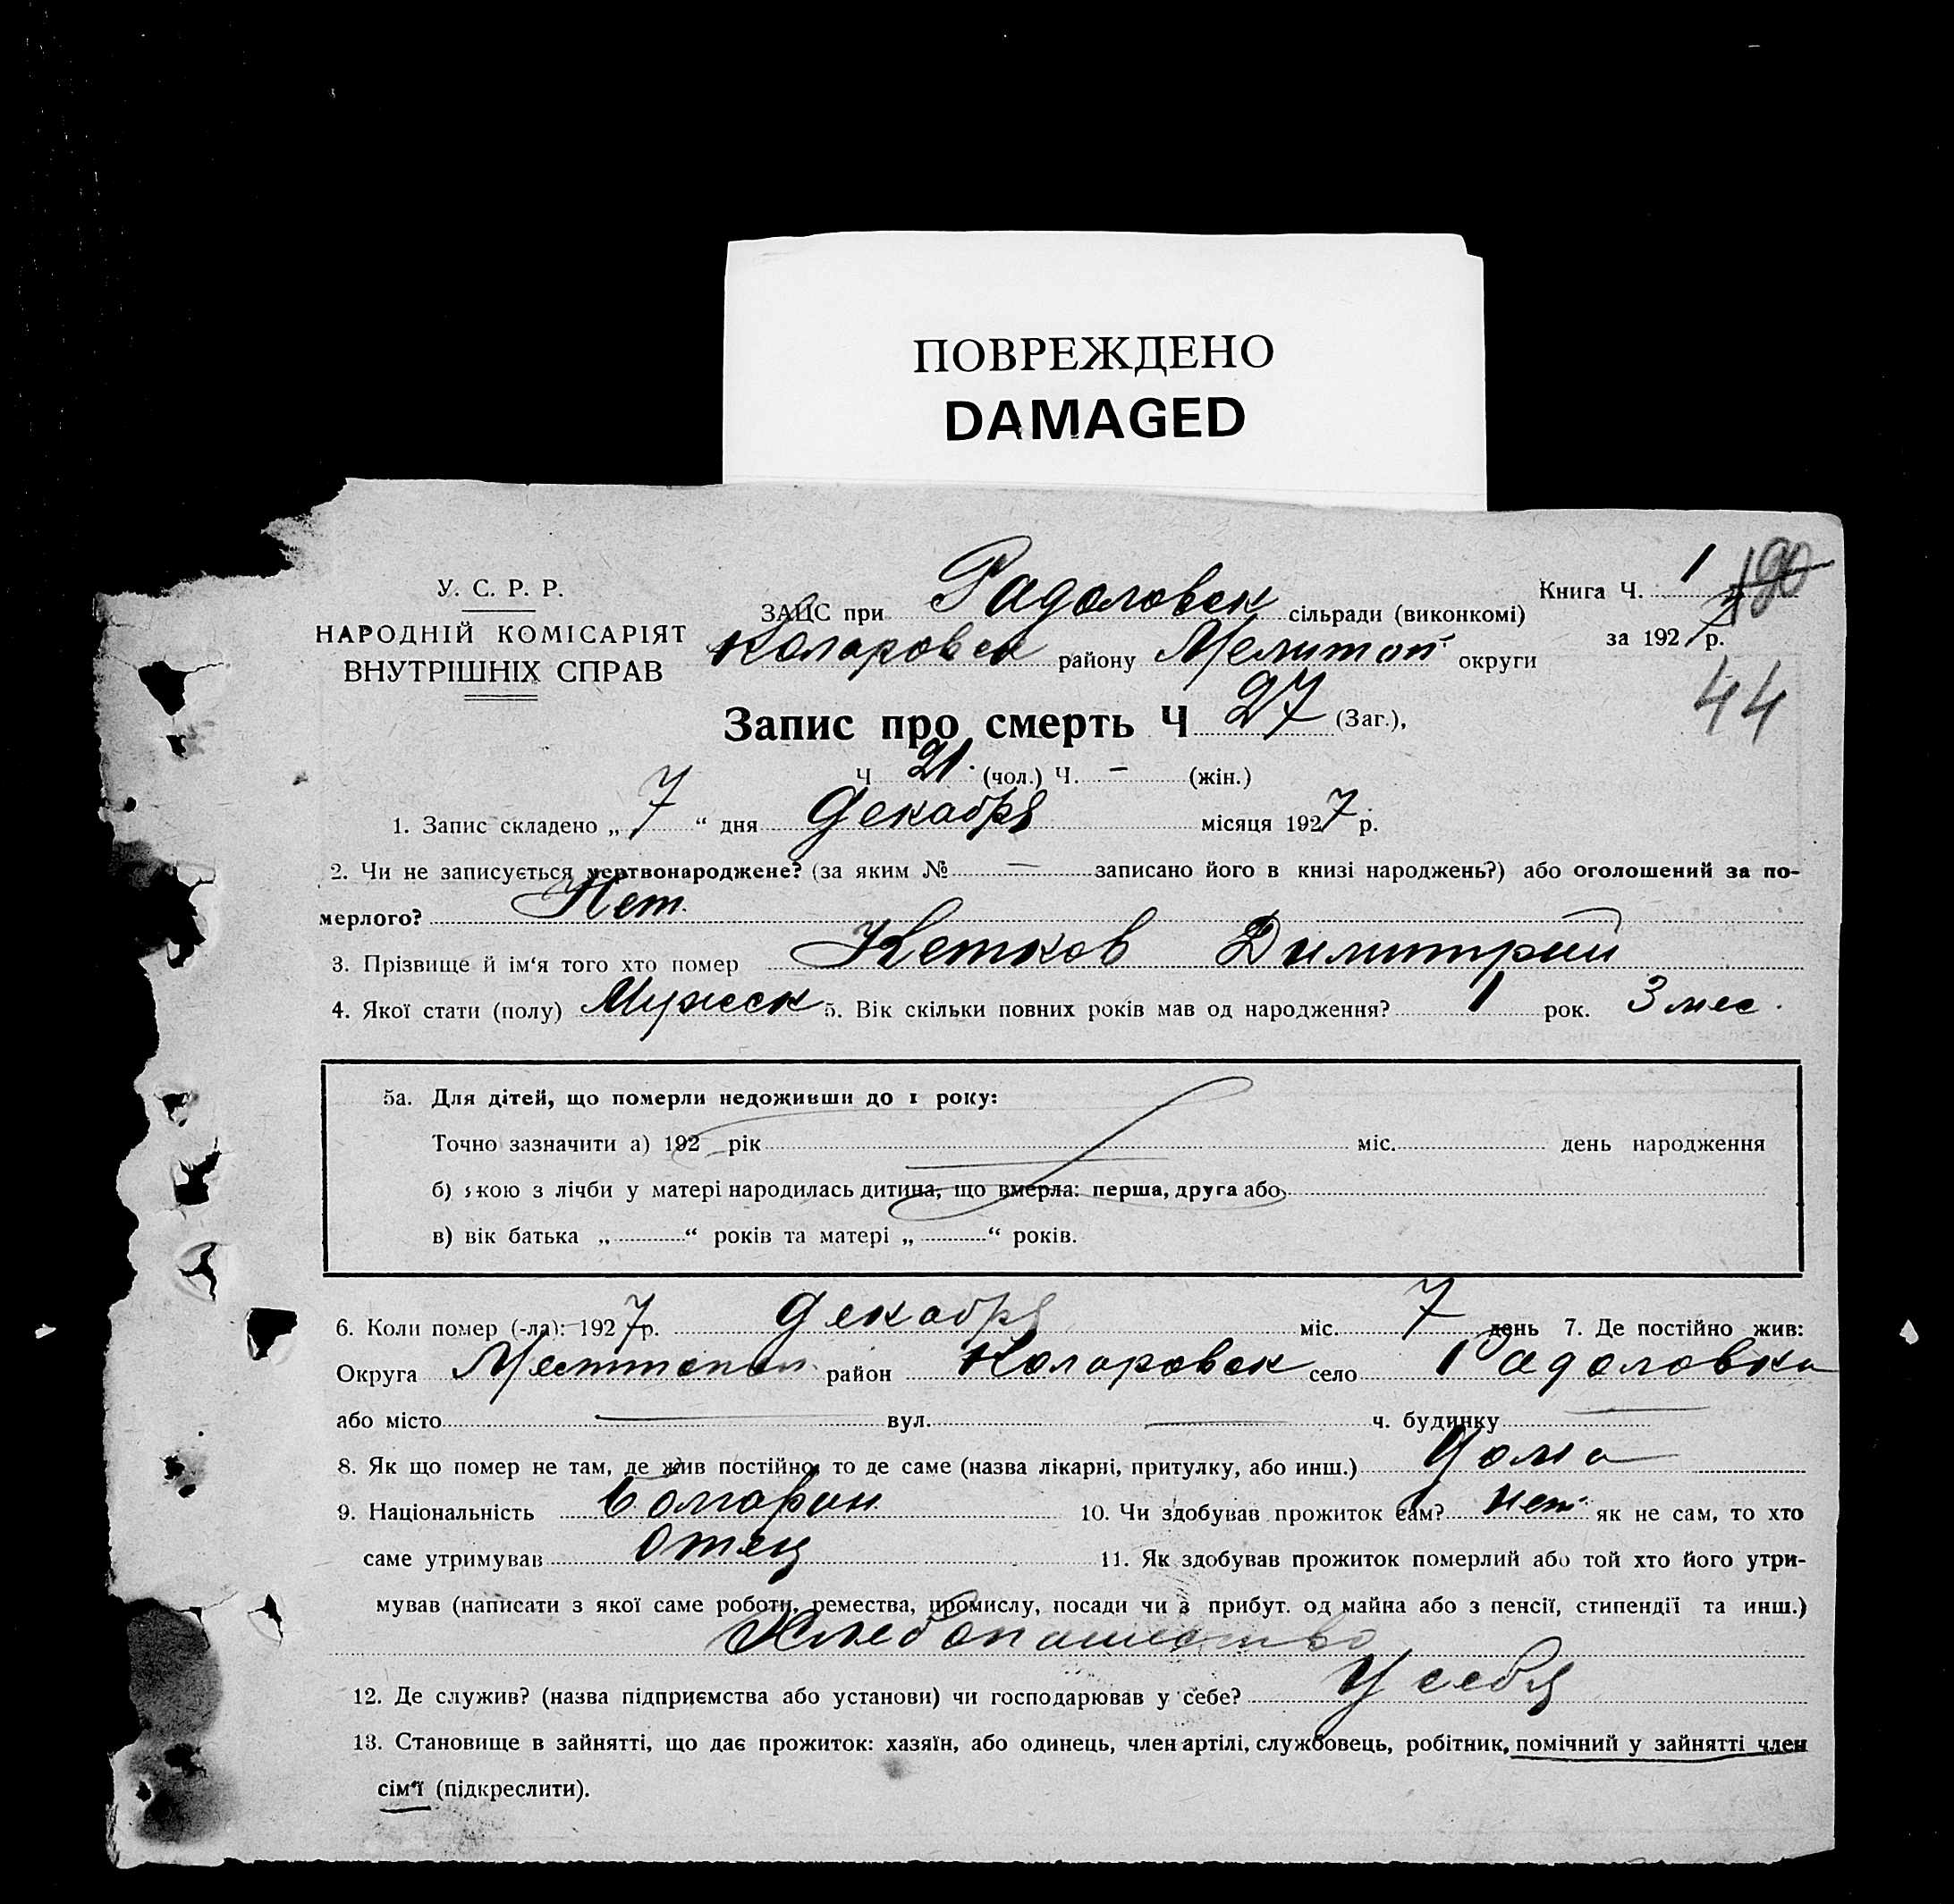 ПОВРЕЖДЕНО
DAMAGED
У. С. Р. Р.
НАРОДНІЙ КОМІСАРІЯТ
ВНУТРІШНІХ СПРАВ
ЗАЦС при Радоловск сільради (виконкомі)
Коларовск району Мелитоп округи
Книга Ч. 1 190
за 1927 р.
44
Запис про смерть Ч 27 (Заг.),
Ч 21. (чол.) Ч. — (жін.)
1. Запис складено „ 7 “ дня Декабря місяця 1927 р.
2. Чи не записується мертвонароджене? (за яким № — записано його в книзі народжень?) або оголошений за по-
мерлого? Нет
3. Прізвище й ім‘я того хто помер Кетков Димитрий
4. Якої стати (полу) Мужеск 5. Вік скільки повних років мав од народження? 1 рок. 3 мес.
5а. Для дітей, що померли недоживши до 1 року:
Точно зазначити а) 192 рік міс. день народження
б) якою з лічби у матері народилась дитина, що вмерла: перша, друга або
в) вік батька „ “ років та матері „ “ років.
6. Коли помер (-ла): 1927 р. Декабря міс. 7 день 7. Де постійно жив:
Округа Мелитопол район Коларовск село Радоловка
або місто — вул. — ч. будинку —
8. Як що помер не там, де жив постійно, то де саме (назва лікарні, притулку, або инш.) Дома
9. Національність Болгарин 10. Чи здобував прожиток сам? Нет як не сам, то хто
саме утримував отец 11. Як здобував прожиток померлий або той хто його утри-
мував (написати з якої саме роботи, ремества, промислу, посади чи з прибут. од майна або з пенсії, стипендії та инш.)
Хлебопашество
12. Де служив? (назва підприємства або установи) чи господарював у себе? У себя
13. Становище в зайнятті, що дає прожиток: хазяїн, або одинець, член артілі, службовець, робітник, помічний у зайнятті член
сім‘ї (підкреслити).